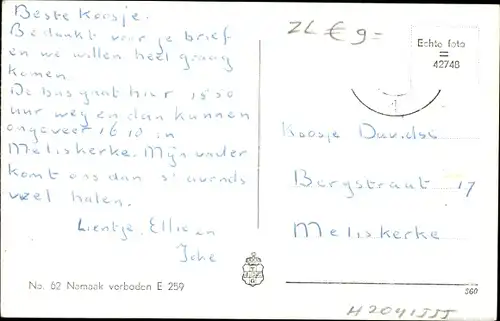 Beste Koosje.
Bedankt voor je brief
en we willen heel graag
komen.
De bus gaat hier 1530
uur weg en dan kunnen
ongeveer 1610 in
Meliskerke. Mijn vader
komt ons dan s' avends
weel halen.
Lientje, Ellie en
ZL € 9=
Echte foto
=
42748
Koosje Davidse
Bergstraat 17
Meliskerke
No. 62 Namaak verboden E 259
360
H2041555